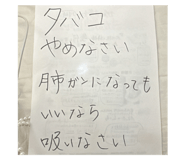 タバコ
やめなさい
肺ガンになっても
いいなら
吸いなさい